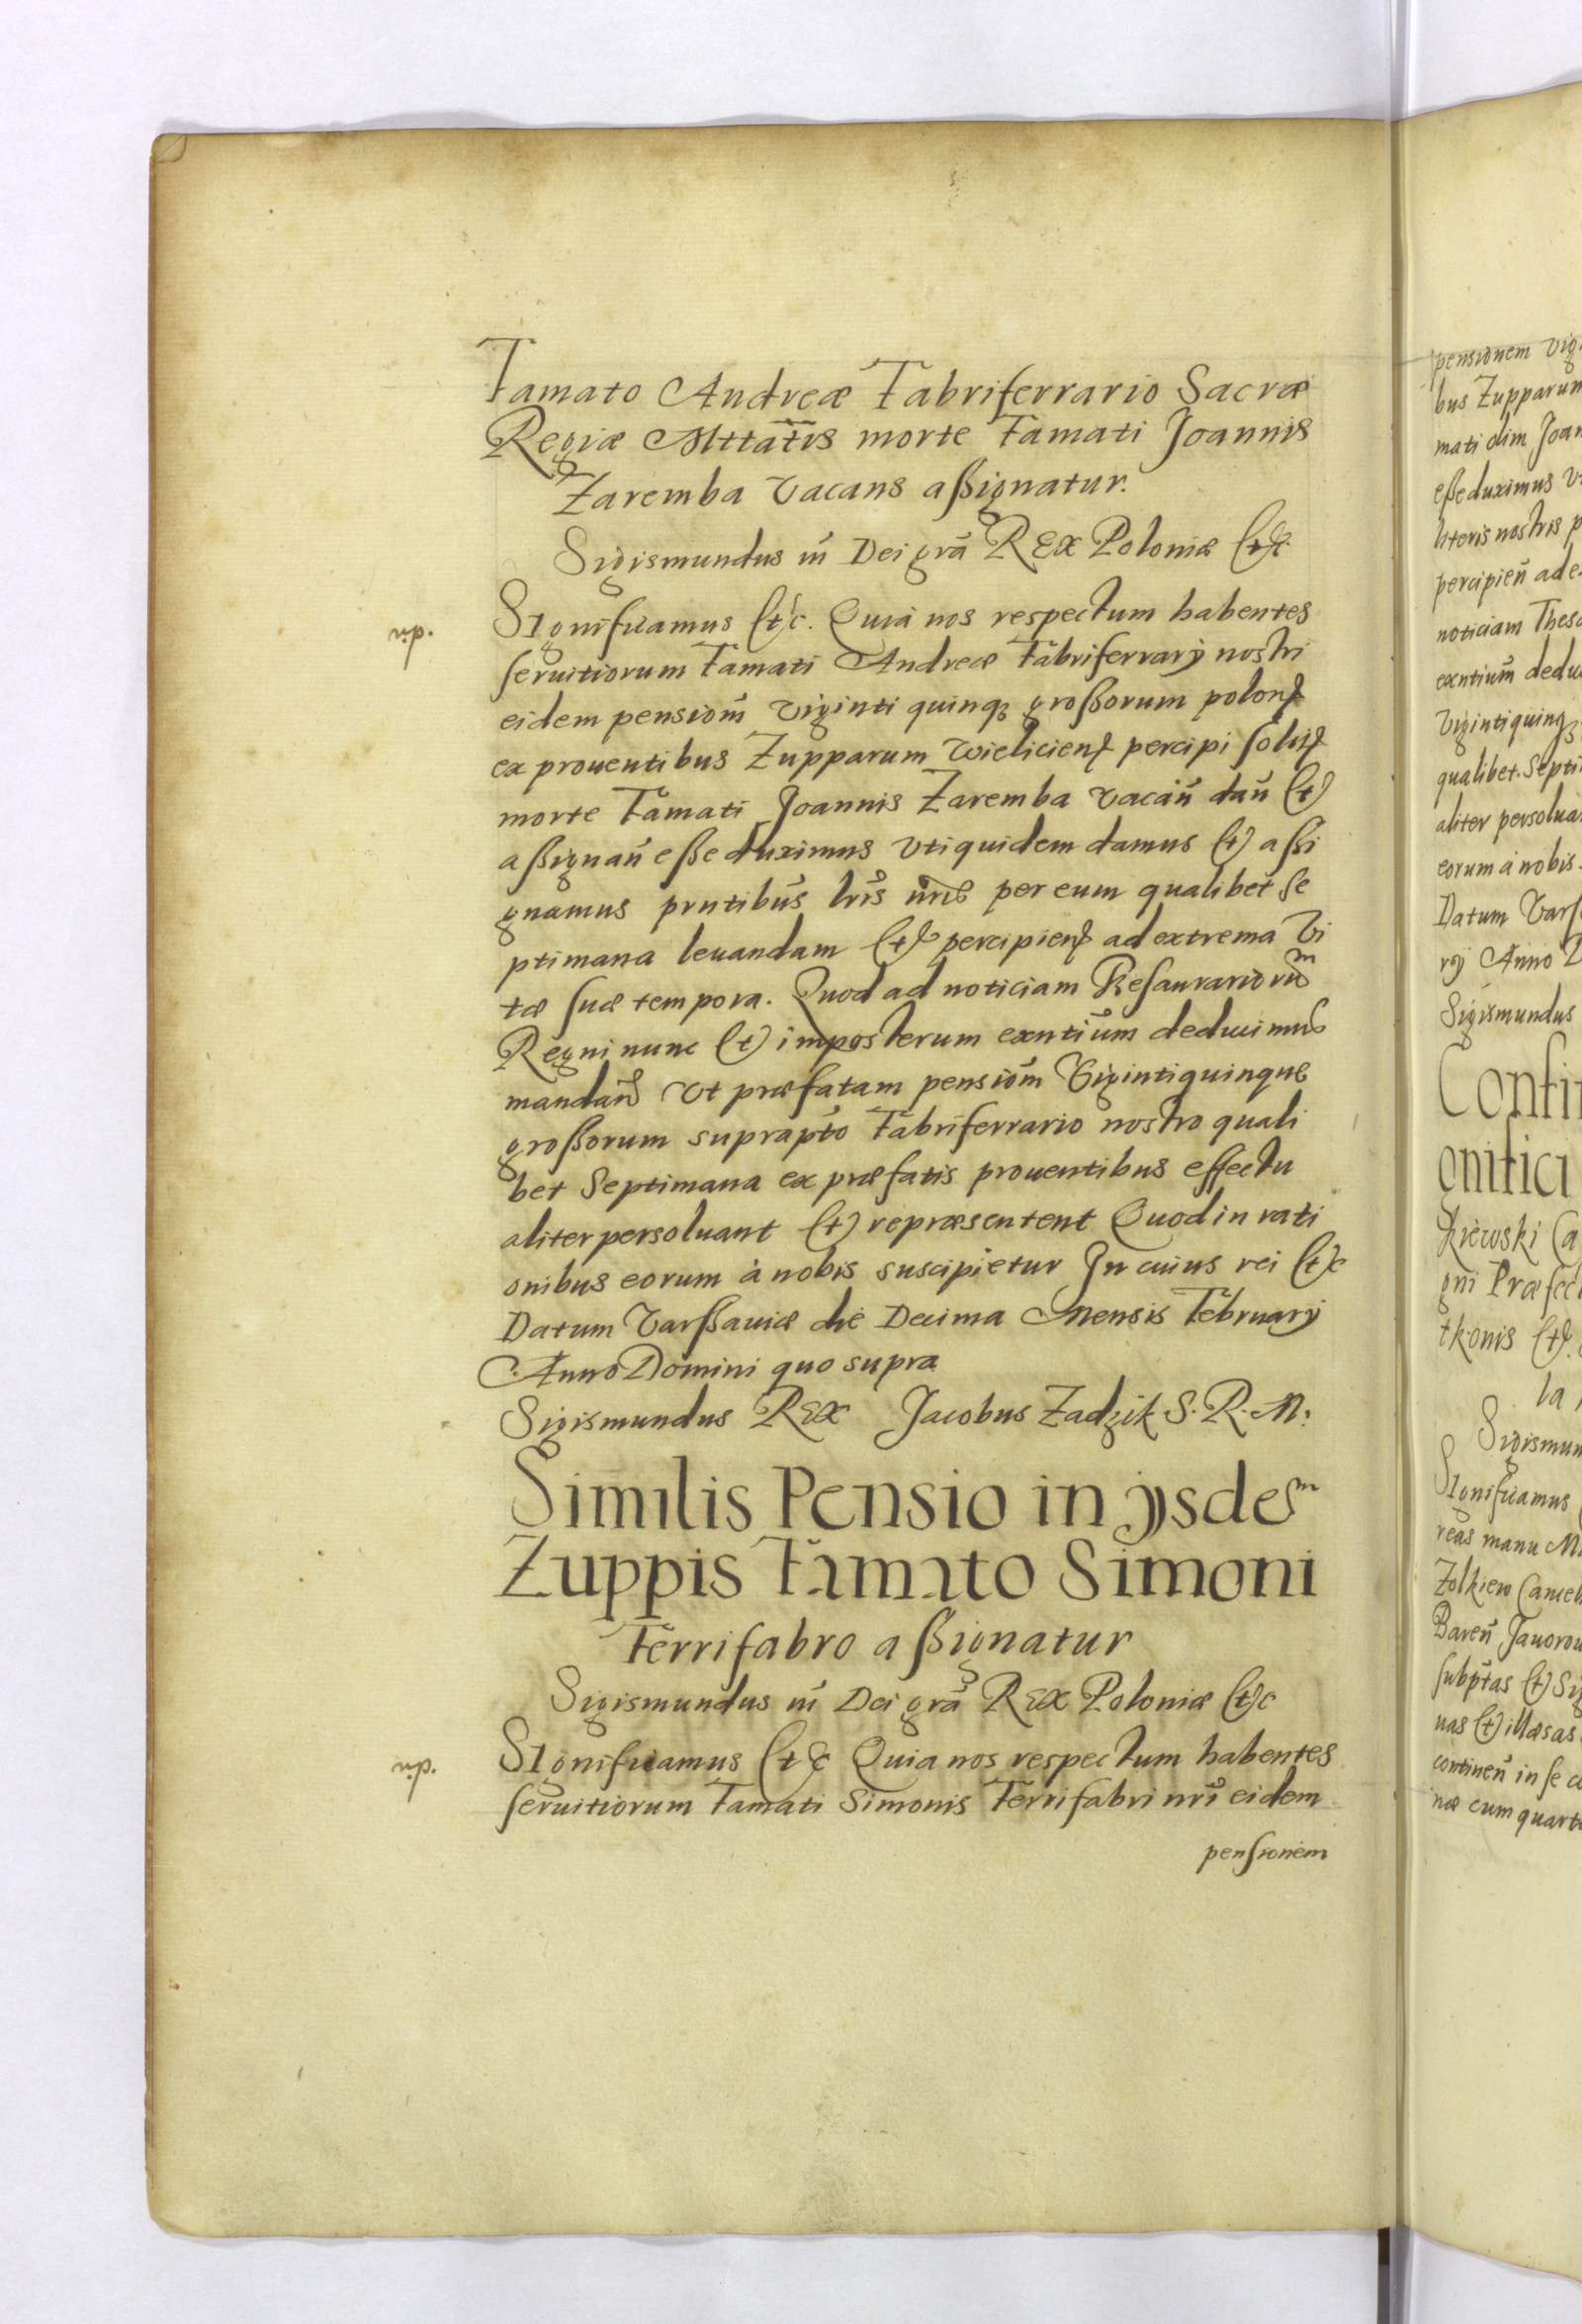 Famato Andreæ Fabriferrario Sacræ
Regiæ Mttatis morte Famati Joannis
Zaremba vacans assignatur.
Sigismundus iii Dei gra REX Poloniæ &c
Significamus &c. Quia nos respectum habentes
seruitiorum Famati Andreæ Fabriferrarÿ nostri
eidem pensiom viginti quinq; grossorum polon
ex prouentibus Zupparum wielicien percipi solit
morte Famati Joannis Zaremba vacan dan &
assignan esse duximus vti quidem damus & assi
gnamus pntibus lris nris per eum qualibet se
ptimana leuandam & percipien ad extrema vi
tæ suæ tempora. Quod ad noticiam Thesaurariorum
Regni nunc & imposterum exntium deducimus
mandan vt præfatam pensiom Viginti quinque
grossorum suprapto Fabriferrario nostro quali
bet Septimana ex præfatis prouentibus effectu
aliter persoluant & repræsentent Quod in rati
onibus eorum à nobis suscipietur In cuius rei &c
Datum Varssauiæ die Decima Mensis Februarÿ
Anno Domini quo supra
Sigismundus REX Jacobus Zadzik S. R. M.
Similis Pensio in ÿsdem
Zuppis Famato Simoni
Ferrifabro assignatur
Sigismundus iii Dei gra REX Poloniæ &c
Significamus &c Quia nos respectum habentes
seruitiorum Famati Simonis Ferrifabri nri eidem
pensionem
pensionem vig
bus Zupparum
mati olim Joan
esse duximus v
literis nostris p
percipien ad e
noticiam Thesa
exntium dedu
Viginti quinq;
qualibet Septi
aliter persolua
eorum à nobis
Datum Vars
rÿ Anno D
Sigismundus
Confir
gnifici
kiewski Ca
gni Præfec
tkonis &
la
Sigismun
Significamus
reas manu Ma
Zolkiew Cancel
Baren Jauorou
subptas & Sig
uas & illæsas
continen in se
næ cum quart